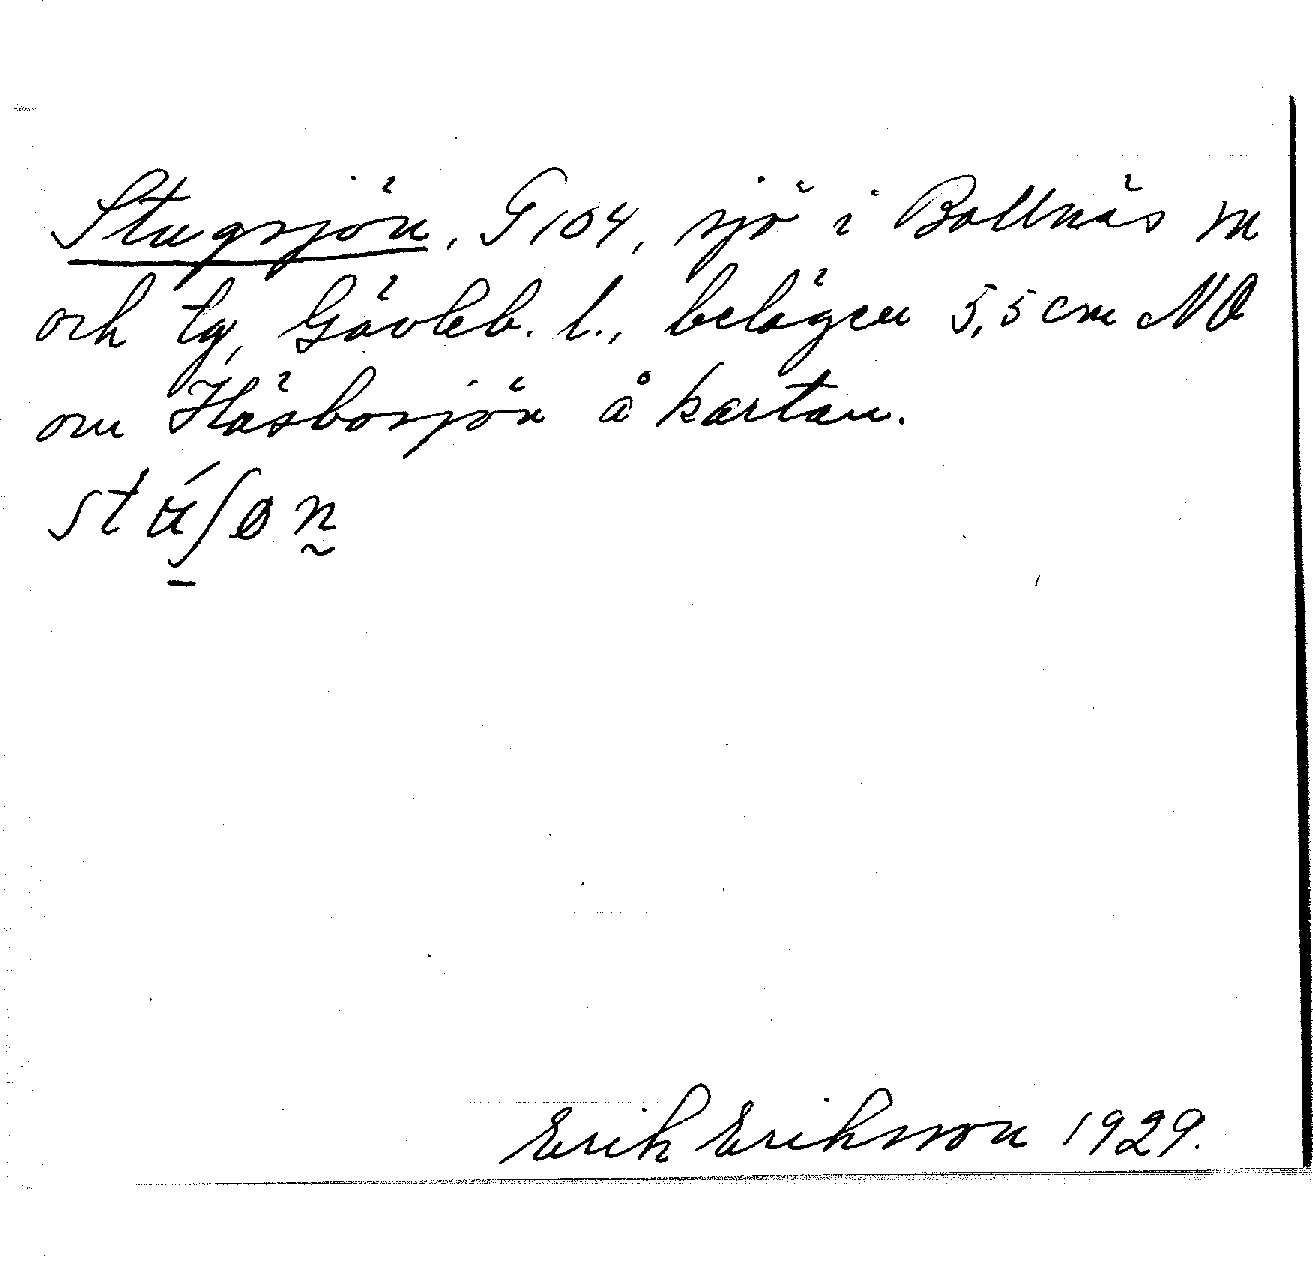 Stugsjön, G 104, sjö i Bollnäs sn
och tg, Gävleb. l., belägen 5,5 cm NO
om Häsbosjön å kartan.
stʉ́ʃøn̰
Erik Eriksson 1929.